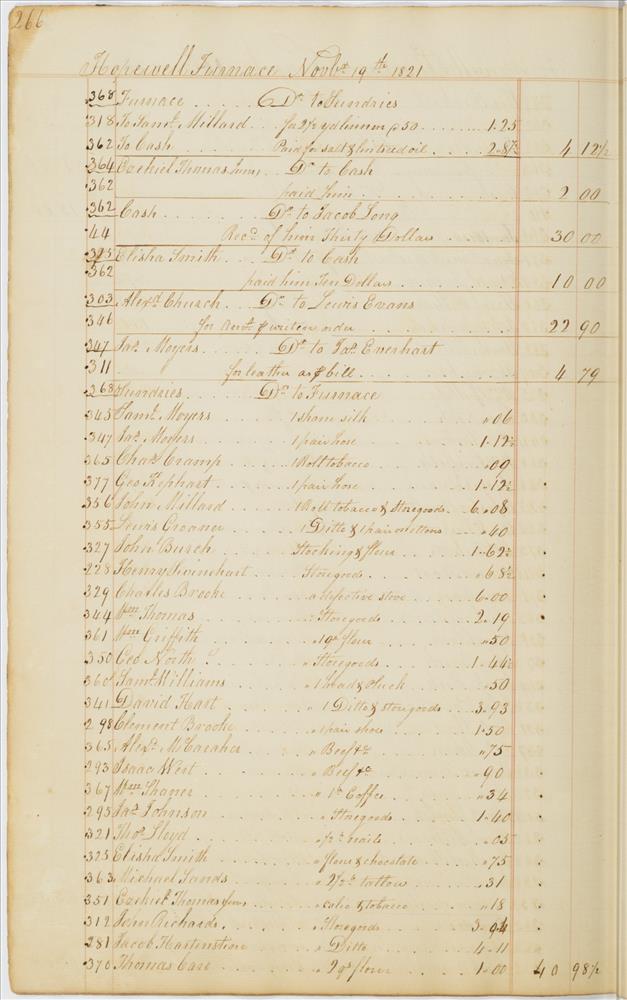 266
Hopewell Furnace Novbr 19th 1821
368 Furnace . . . . . Dr to Sundries
318 To Saml Millard . . . for 2½ yd linnen @ 50 . . . . . . . 1.25
362 To Cash . . . . . . . Paid for salt & lintseed oil . . . . . . 2.87½ 4 12½
364 Ezekiel Thomas Junr . . Dr to Cash
362 paid him . . . . . . . . . . 2 00
362 Cash . . . . . . . . . Dr to Jacob Long
44 Recd of him Thirty Dollars . . . . . 30 00
325 Elisha Smith . . . Dr to Cash
362 paid him Ten Dollars . . . . . . . . 10 00
303 Alexd Church . . Dr to Lewis Evans
346 for amt pr writen order . . . . . . . . 22 90
347 Jas Moyers . . . . . Dr to Jas Everhart
311 for leather as pr bill . . . . . . . . 4 79
268 Sundries . . . . . Dr to Furnace
345 Saml Moyers . . . . . . 1 skane silk . . . . . . . . . " 06
347 Jas Moyers . . . . . . 1 pair hose . . . . . . . . 1.12½
365 Chas Cramp . . . . . . 1 Roll tobacco . . . . . . . " 09
377 Geo Kephart . . . . . 1 pair hose . . . . . . . . 1.12½
356 John Millard . . . . . 1 Roll tobacco & Storegoods . . 6.08
355 Lewis Croaner . . . . . 1 Ditto & 1 pair mittens . . . " 40
327 John Burch . . . . . . Stocking & flour . . . . . . 1.62½
228 Henry Swinehart . . . . Storegoods . . . . . . . . " 68½
329 Charles Brooke . . . . . a defective stove . . . . . . 6.00
344 Wm Thomas . . . . . . " Storegoods . . . . . . . 2.19
361 Wm Griffith . . . . . . " 1 qr flour . . . . . . . . " 50
350 Geo North . . . . . . . " Storegoods . . . . . . . 1.44½
360 Saml Williams . . . . . " 1 head & Pluck . . . . . . " 50
341 David Hart . . . . . . " 1 Ditto & storegoods . . . . 3.93
298 Clement Brooke . . . . " 1 pair shoes . . . . . . . 1.50
365 Alexr McCaraher . . . . " Beef &c . . . . . . . . " 75
293 Isaac West . . . . . . " Beef &c . . . . . . . . " 90
367 Wm Shaner . . . . . . " 1 lb Coffee . . . . . . . " 34
295 Jas Johnson . . . . . . " Storegoods . . . . . . . 1.40
321 Thos Lloyd . . . . . . " ½ lb nails . . . . . . . " 05
325 Elisha Smith . . . . . " flour & chocolate . . . . . " 75
363 Michael Sands . . . . . " 2½ lb tallow . . . . . . . " 31
351 Ezekiel Thomas Junr . . . " calico & tobacco . . . . . " 18
312 John Richards . . . . . " Storegoods . . . . . . . 3.94
281 Jacob Hartenstine . . . . " Ditto . . . . . . . . . 4.11
370 Thomas Care . . . . . . " 2 qrs flour . . . . . . . 1.00 40 98½